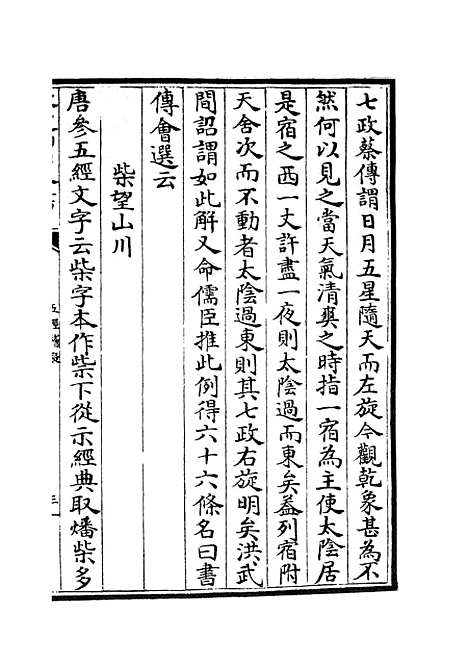 七政蔡傳謂日月五星隨天而左旋今觀乾象甚為不
然何以見之當天氣清爽之時指一宿為主使太陰居
是宿之西一丈許盡一夜則太陰過而東矣葢列宿附
天舍次而不動者太陰過東則其七政右旋明矣洪武
間詔謂如此解又命儒臣推此例得六十六條名曰書
傳會選云
柴望山川
唐參五經文字云柴字本作祡下從示經典取燔柴多
三